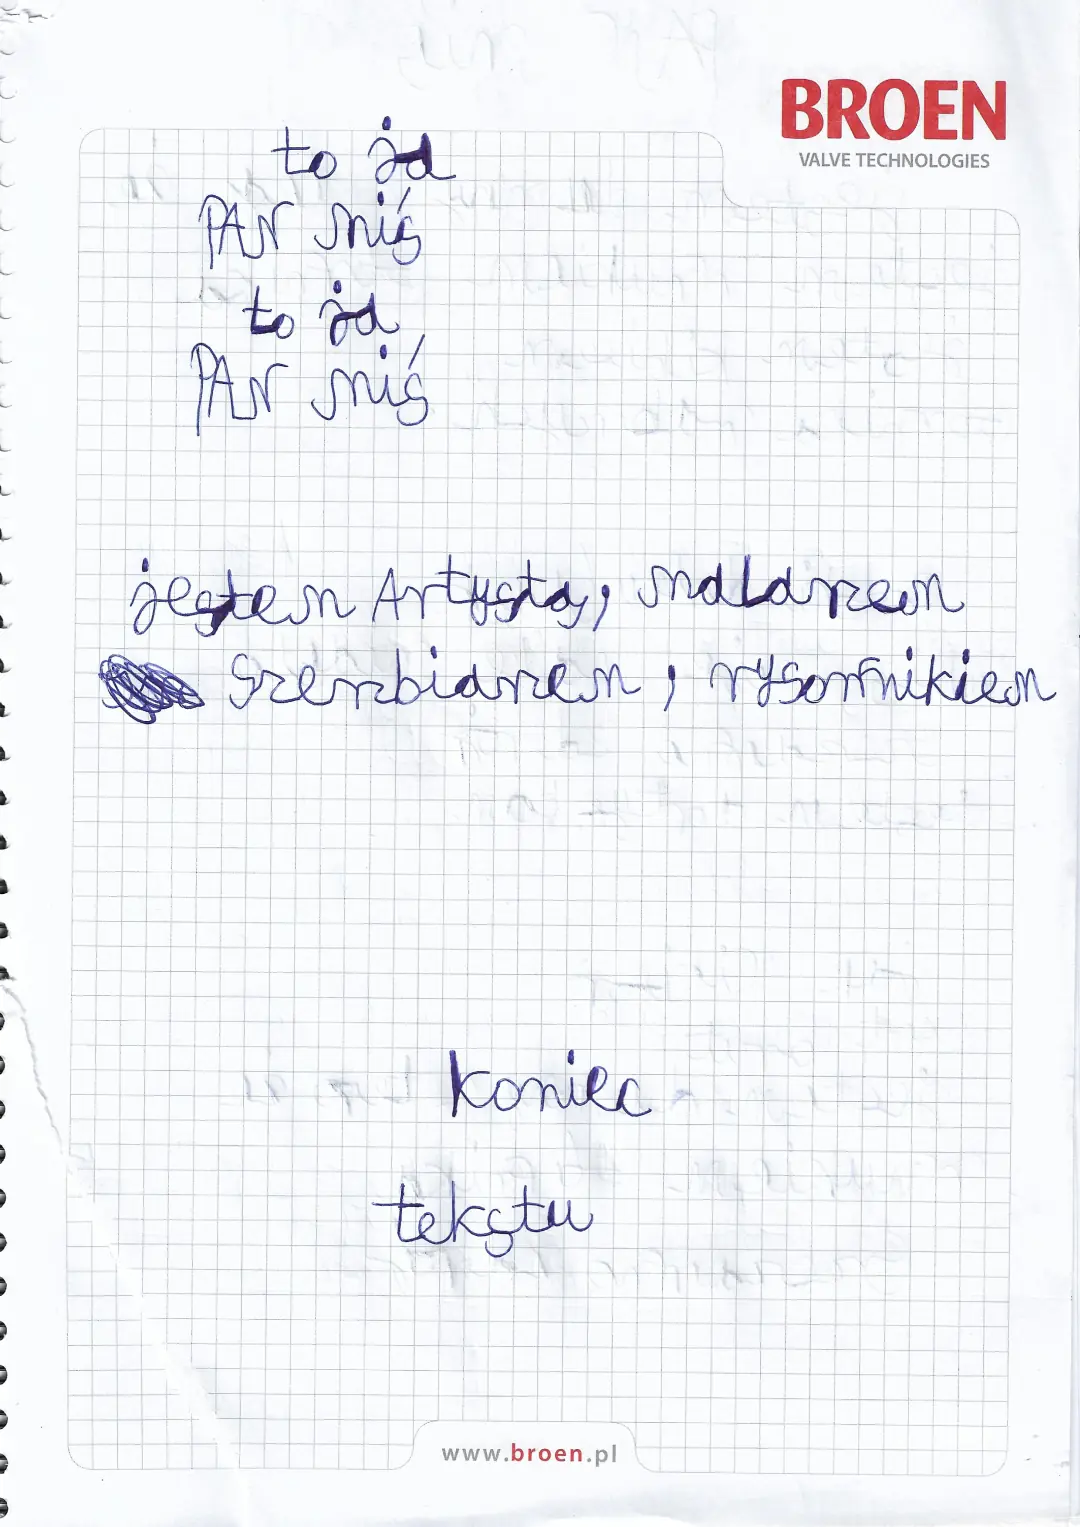 BROEN
VALVE TECHNOLOGIES
to ja
PAN miś
to ja
PAN miś
jestem Artystą, malarzem
rzerzbiarzem, rysownikiem
koniec
tekstu
www.broen.pl